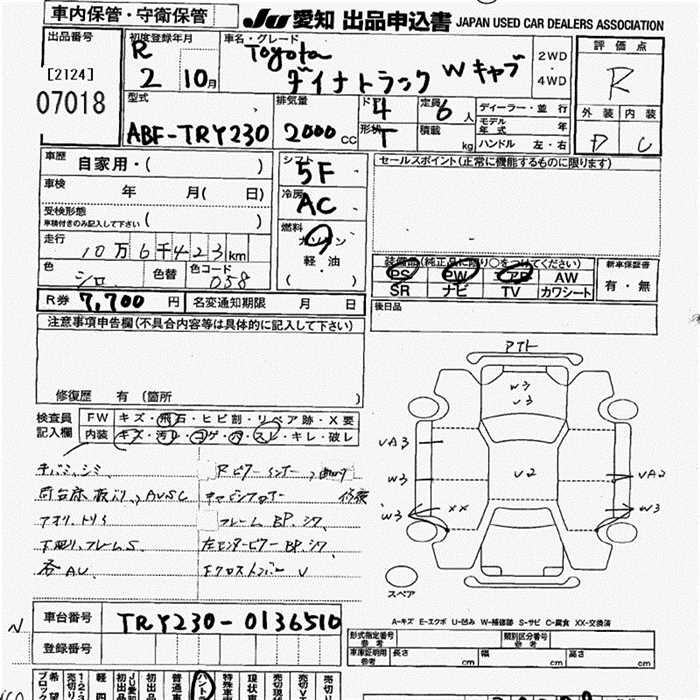 車内保管・守衛保管
JU 愛知 出品申込書 JAPAN USED CAR DEALERS ASSOCIATION
出品番号
[2124]
07018
初度登録年月
R 2 10月
車名・グレード
Toyota
ダイナトラック Wキャブ
2WD
4WD
評価点
R
外装 内装
D C
型式
ABF-TRY230
排気量
2000 cc
ド 4
形状 T
定員 6 人
積載 kg
ディーラー・並行
モデル年式 年
ハンドル 左・右
車歴 自家用・( )
車検 年 月( 日)
受検形態
車検付きのみ記入して下さい ( )
走行 10万6千423km
色 シロ 色替 色コード 058
シフト 5F
冷房 AC
燃料
ガソリン
軽・油
( )
セールスポイント(正常に機能するものに限ります)
装備品(純正品に限り○をつけてください)
PS PW エアB AW
SR ナビ TV カワシート
新車保証書
有・無
後日品
R券 7,700円 名変通知期限 月 日
注意事項申告欄(不具合内容等は具体的に記入して下さい)
修復歴 有 (箇所 )
検査員記入欄
FW キズ・飛石・ヒビ割・リペア跡・X要
内装 キズ・汚レ・コゲ・穴・スレ・キレ・破レ
アオリ、トリS
下廻り、フレームS
フレームBP、シワ
左センターピラーBP、シワ
修復
アト
W3
U3
UA3
W3
W3
XX
U2
UA2
W3
スペア
A-キズ E-エクボ U-凹み W-補修跡 S-サビ C-腐食 XX-交換済
N
車台番号 TRY230-0136510
登録番号
型式指定番号 参考
類別区分番号 参考
車庫証明用 参考 長さ cm 幅 cm 高さ cm